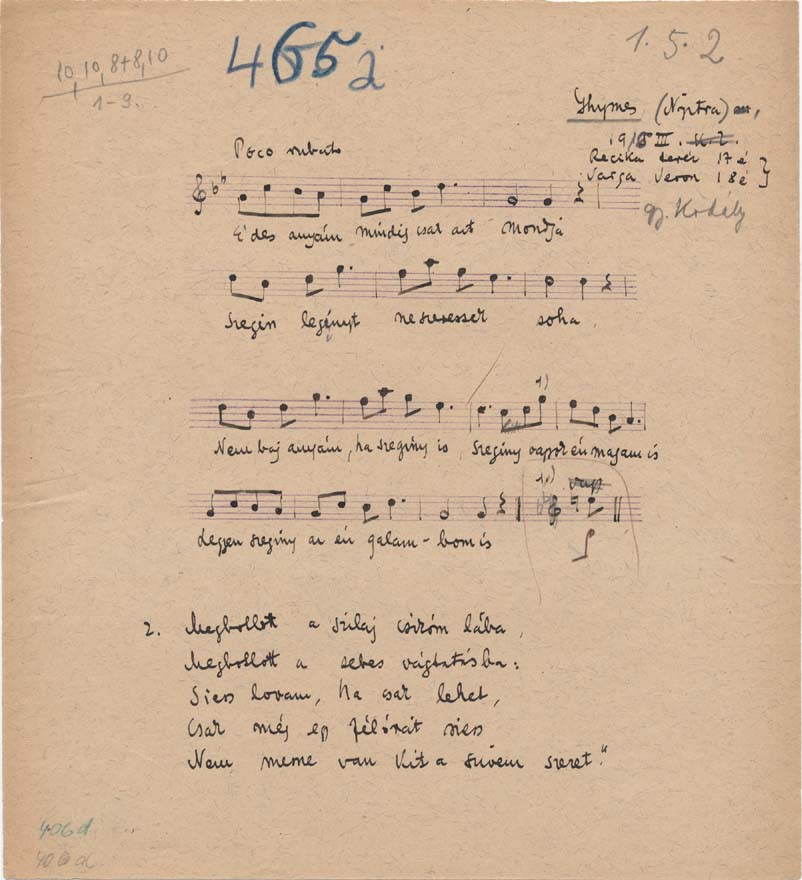 10, 10, 8+8, 10
1-9.
465
1. 5. 2
Ghymes (Nyitra)
III.
Recika Teréz 17 é
Varga Veron 18 é
Poco rubato
gy. Kodály
Édes anyám mindig csak azt mondja
Szegin legényt ne szeressek soha,
Nem baj anyám, ha szeginy is, szeginy vagyok én magam is
Legyen szeginy az én galam-bom is
2. Megbotlott a szilaj csizóm lába,
Megbotlott a sebes vágtatásba:
Siess lovam, ha csak lehet,
Csak még egy félórát siess
Nem messe van kit a szivem szeret."
406d
406d